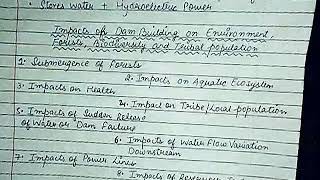 Stores water + Hydroelectric Power
Impacts of Dam Building on Environment,
Forests, Biodiversity and Tribal population
1. Submergence of Forests
2. Impacts on Aquatic Ecosystem
3. Impacts on Health
4. Impact on Tribe/Local population
5. Impacts of Sudden Release
of Water or Dam Failure
6. Impacts of Water Flow Variation
Downstream
7. Impacts of Power Lines
8. Impacts of Reservoir